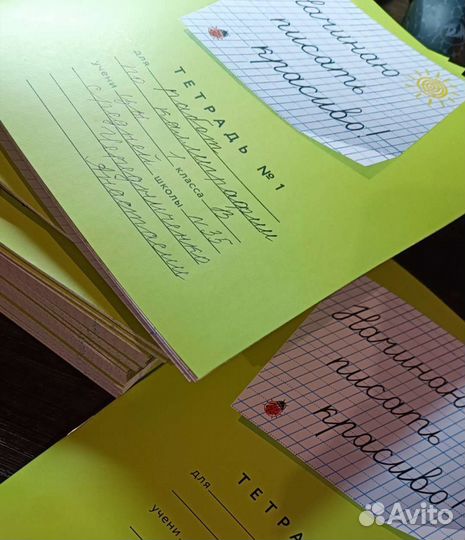 Начинаю
писать
красиво!
ТЕТРАДЬ №1
для работ
по каллиграфии
учени цы 1 класса В
средней школы №35
Анастасии
Начинаю
писать
красиво!
ТЕТРА
для
учени
Avito